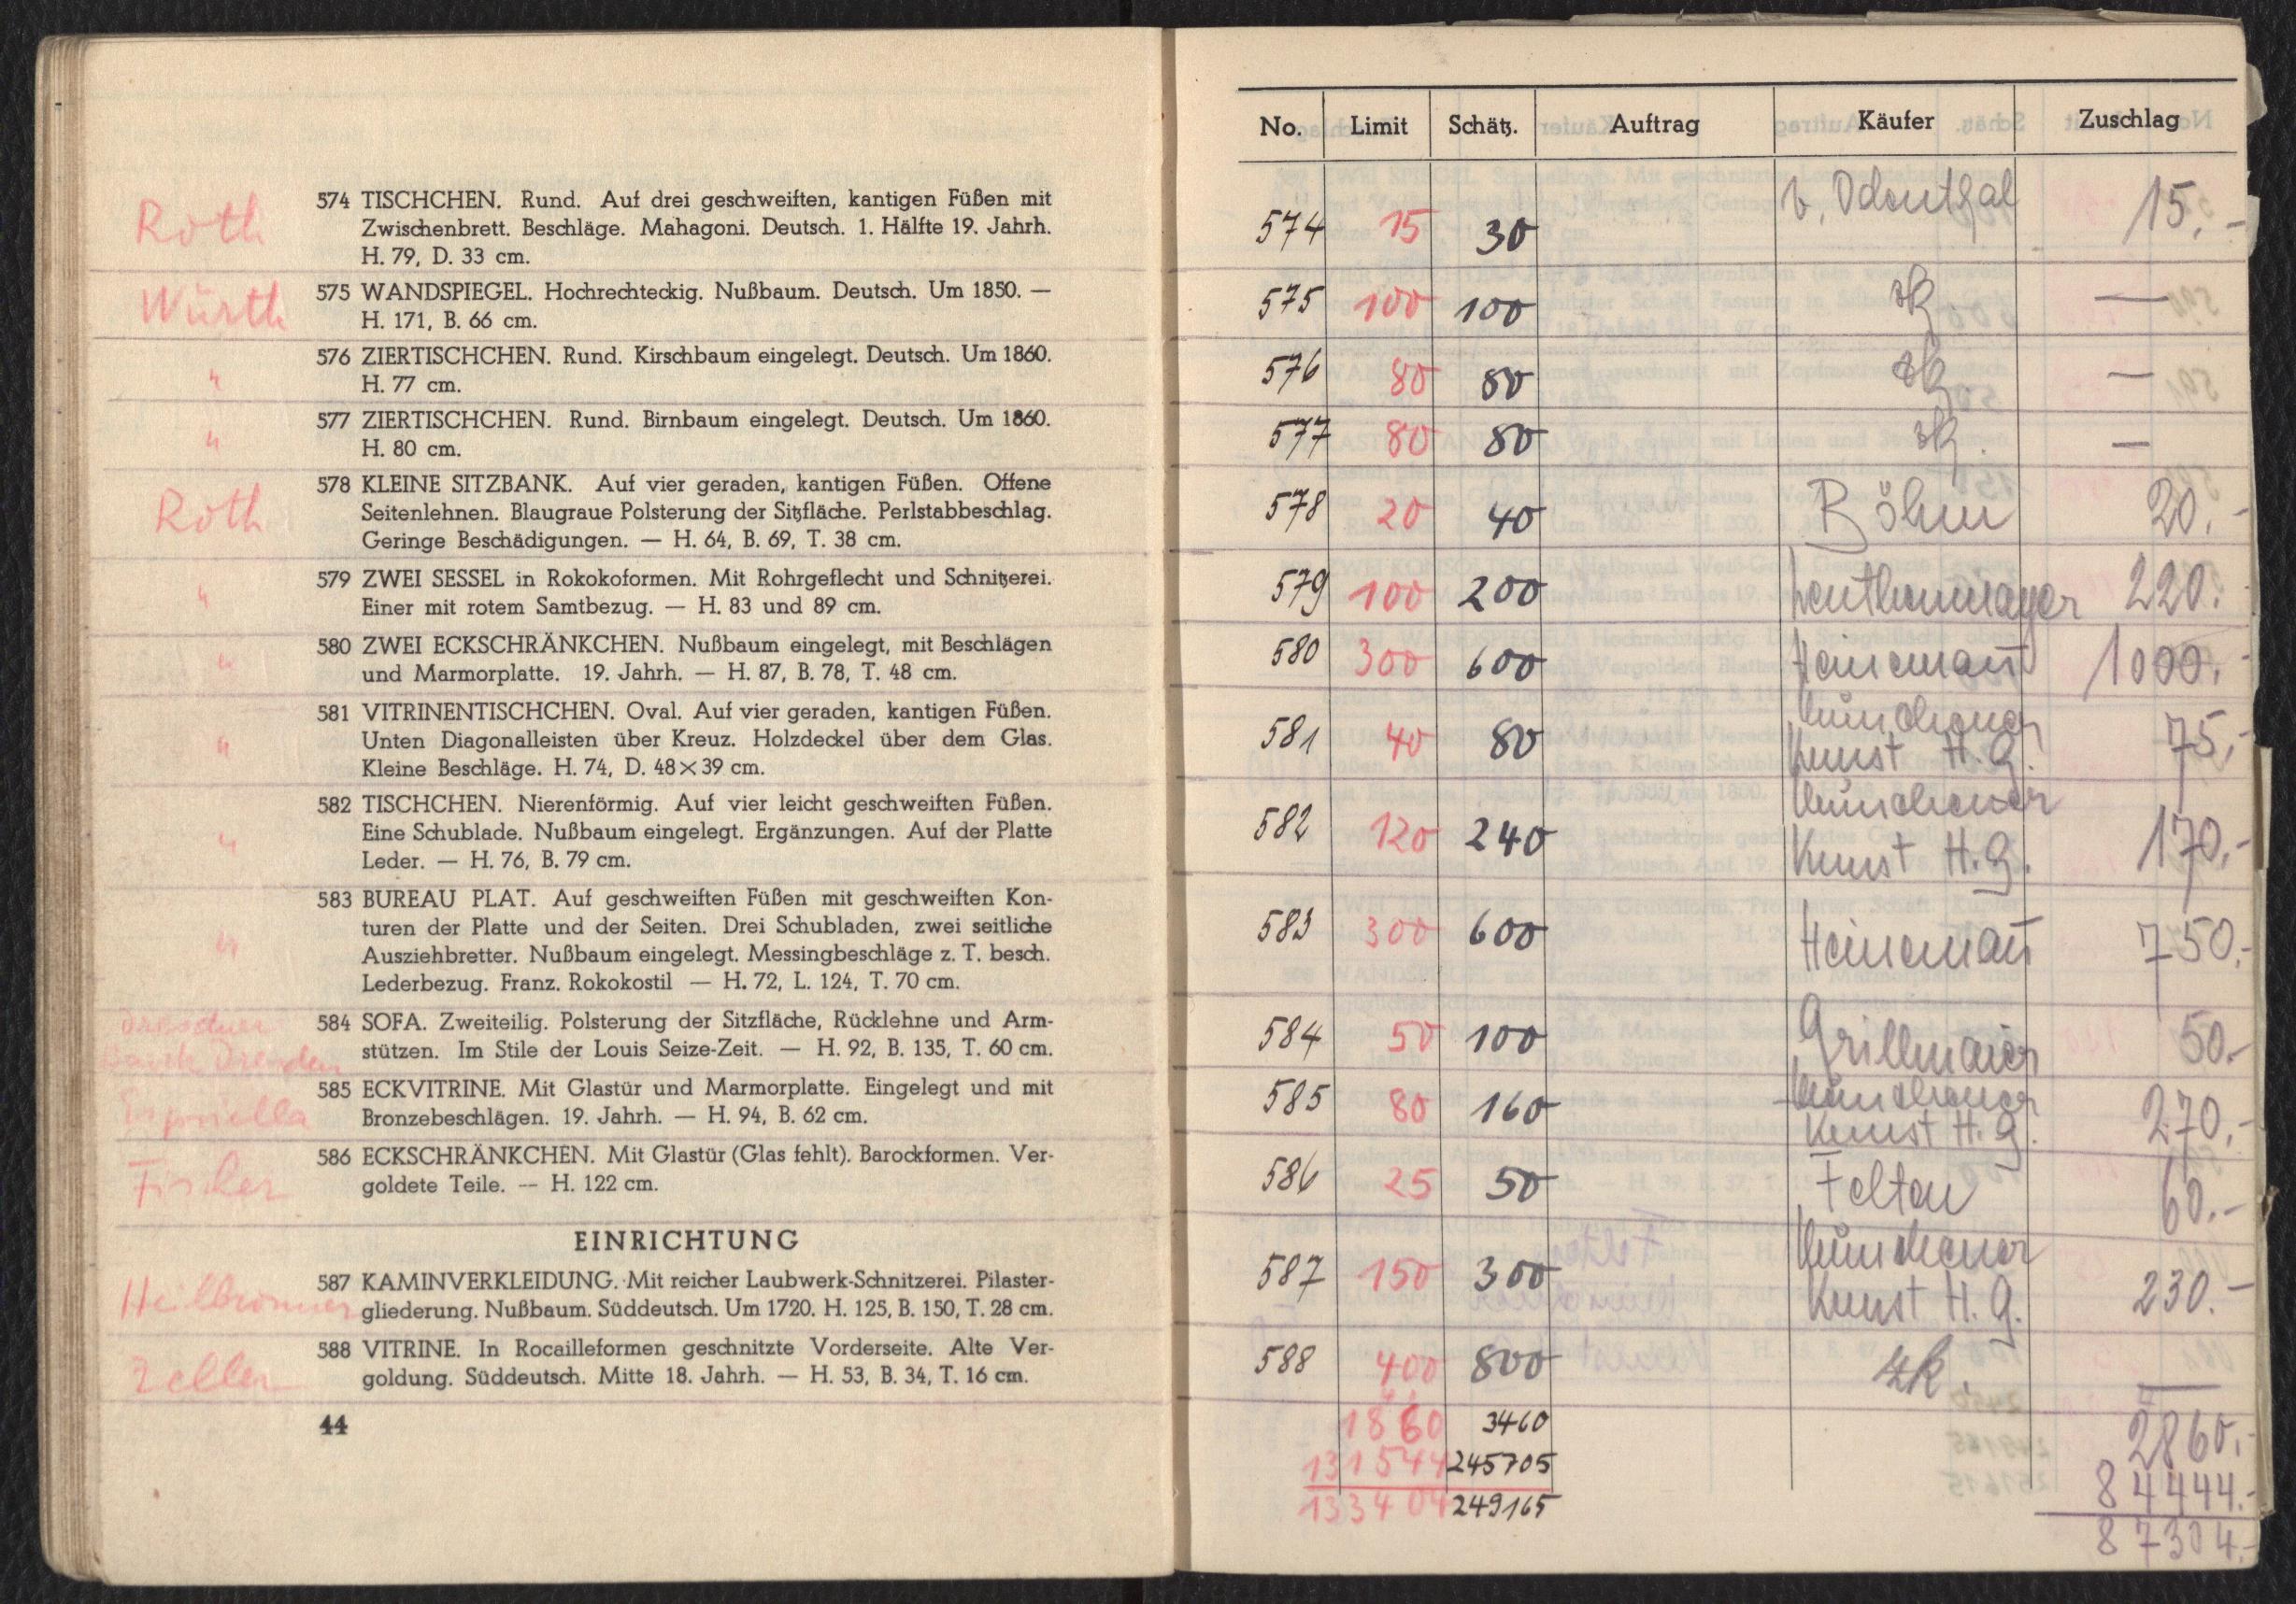 Roth
574 TISCHCHEN. Rund. Auf drei geschweiften, kantigen Füßen mit
Zwischenbrett. Beschläge. Mahagoni. Deutsch. 1. Hälfte 19. Jahrh.
H. 79, D. 33 cm.
Würth
575 WANDSPIEGEL. Hochrechteckig. Nußbaum. Deutsch. Um 1850. —
H. 171, B. 66 cm.
"
576 ZIERTISCHCHEN. Rund. Kirschbaum eingelegt. Deutsch. Um 1860.
H. 77 cm.
"
577 ZIERTISCHCHEN. Rund. Birnbaum eingelegt. Deutsch. Um 1860.
H. 80 cm.
Roth
578 KLEINE SITZBANK. Auf vier geraden, kantigen Füßen. Offene
Seitenlehnen. Blaugraue Polsterung der Sitzfläche. Perlstabbeschlag.
Geringe Beschädigungen. — H. 64, B. 69, T. 38 cm.
"
579 ZWEI SESSEL in Rokokoformen. Mit Rohrgeflecht und Schnitzerei.
Einer mit rotem Samtbezug. — H. 83 und 89 cm.
"
580 ZWEI ECKSCHRÄNKCHEN. Nußbaum eingelegt, mit Beschlägen
und Marmorplatte. 19. Jahrh. — H. 87, B. 78, T. 48 cm.
"
581 VITRINENTISCHCHEN. Oval. Auf vier geraden, kantigen Füßen.
Unten Diagonalleisten über Kreuz. Holzdeckel über dem Glas.
Kleine Beschläge. H. 74, D. 48×39 cm.
"
582 TISCHCHEN. Nierenförmig. Auf vier leicht geschweiften Füßen.
Eine Schublade. Nußbaum eingelegt. Ergänzungen. Auf der Platte
Leder. — H. 76, B. 79 cm.
"
583 BUREAU PLAT. Auf geschweiften Füßen mit geschweiften Kon-
turen der Platte und der Seiten. Drei Schubladen, zwei seitliche
Ausziehbretter. Nußbaum eingelegt. Messingbeschläge z. T. besch.
Lederbezug. Franz. Rokokostil — H. 72, L. 124, T. 70 cm.
Dresdner
Bank Dresden
584 SOFA. Zweiteilig. Polsterung der Sitzfläche, Rücklehne und Arm-
stützen. Im Stile der Louis Seize-Zeit. — H. 92, B. 135, T. 60 cm.
585 ECKVITRINE. Mit Glastür und Marmorplatte. Eingelegt und mit
Bronzebeschlägen. 19. Jahrh. — H. 94, B. 62 cm.
Fischer
586 ECKSCHRÄNKCHEN. Mit Glastür (Glas fehlt). Barockformen. Ver-
goldete Teile. — H. 122 cm.
EINRICHTUNG
Heilbronner
587 KAMINVERKLEIDUNG. Mit reicher Laubwerk-Schnitzerei. Pilaster-
gliederung. Nußbaum. Süddeutsch. Um 1720. H. 125, B. 150, T. 28 cm.
Zeller
588 VITRINE. In Rocailleformen geschnitzte Vorderseite. Alte Ver-
goldung. Süddeutsch. Mitte 18. Jahrh. — H. 53, B. 34, T. 16 cm.
44
No. Limit Schätz. Auftrag Käufer Zuschlag
574 15 30 v. Odenthal 15.-
575 100 100 zk —
576 80 80 zk. —
577 80 80 zk. —
578 20 40 Böhm 20.-
579 100 200 Leuthenmayer 220.-
580 300 600 Heinemann 1000.-
581 40 80 Münchener
Kunst H.G. 75,-
582 120 240 Münchener
Kunst H.G. 170.-
583 300 600 Heinemann 750.-
584 50 100 Grillmaier 50.-
585 80 160 Münchener
Kunst H.G. 270.-
586 25 50 Felten 60.-
587 150 300 Münchener
Kunst H.G. 230.-
588 400 800 zk. —
1860 3460 2860.-
131544 245705 84444.-
133404 249165 87304.-